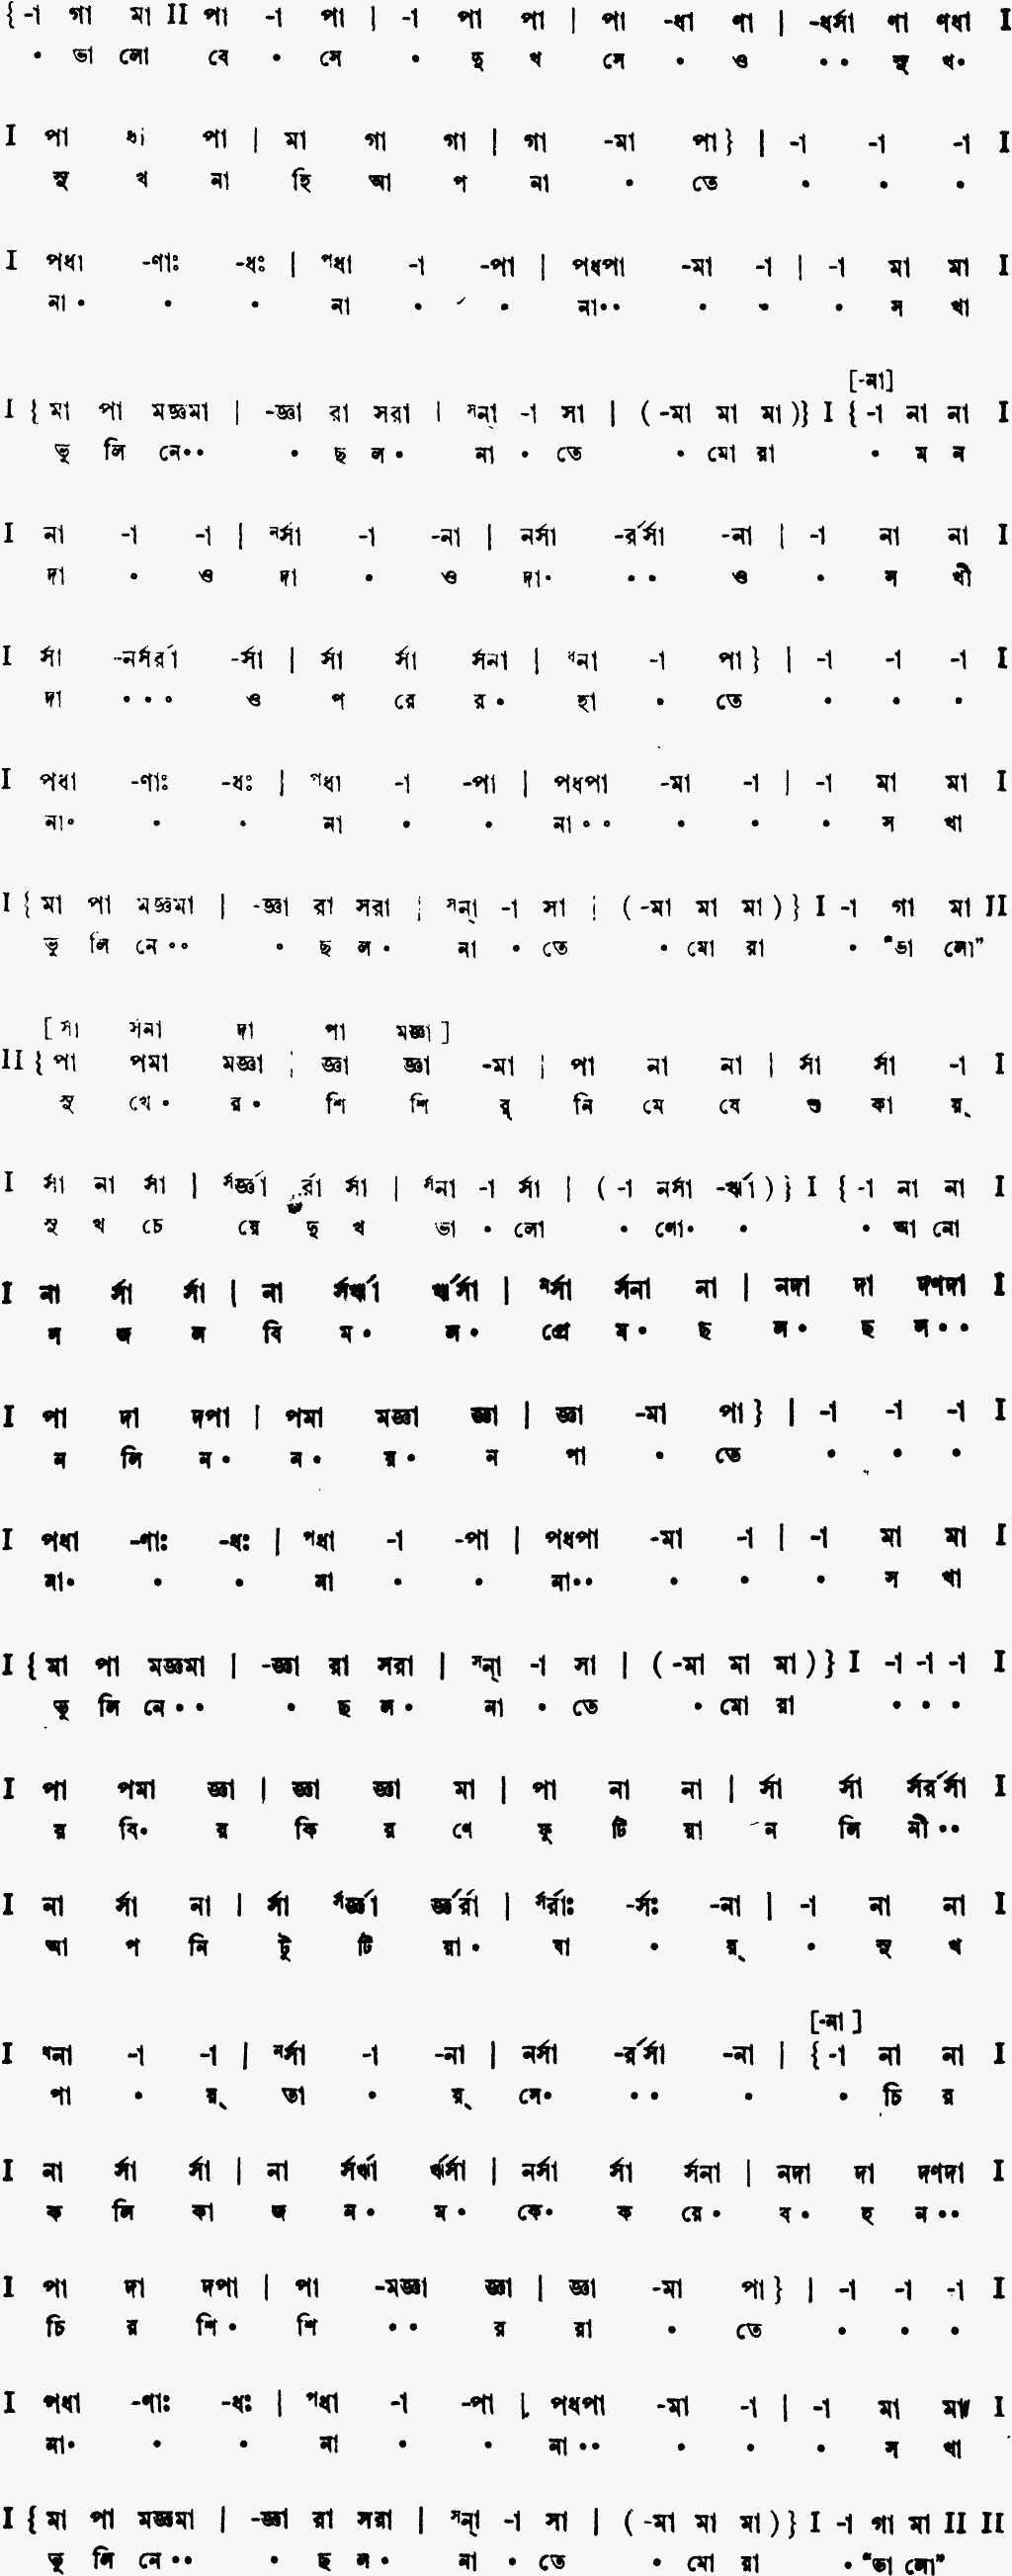 { -া গা মা II পা -া পা | -া পা পা | পা -ধা ণা | -ধর্সা ণা ণধা I
• ভা লো বে • সে • দু খ সে • ও •• সু খ•
I পা ধা পা | মা গা গা | গা -মা পা } | -া -া -া I
সু খ না হি আ প না • তে • • •
I পধা -ণাঃ -ধঃ | পধা -া -পা | পধপা -মা -া | -া মা মা I
না• • • না • • না•• • • • স খা
[-না]
I { মা পা মজ্ঞমা | -জ্ঞা রা সরা | সন্া -া সা | (-মা মা মা)} I { -া না না I
ভু লি নে•• • ছ ল• না • তে • মো রা • ম ন
I না -া -া | নর্সা -া -না | নর্সা -র্র্সা -না | -া না না I
দা • ও দা • ও দা• •• ও • স খী
I র্সা -নর্সর্রা -র্সা | র্সা র্সা র্সনা | ধনা -া পা } | -া -া -া I
দা ••• ও প রে র• হা • তে • • •
I পধা -ণাঃ -ধঃ | পধা -া -পা | পধপা -মা -া | -া মা মা I
না• • • না • • না•• • • • স খা
I { মা পা মজ্ঞমা | -জ্ঞা রা সরা | সন্া -া সা | (-মা মা মা)} I -া গা মা II
ভু লি নে•• • ছ ল• না • তে • মো রা • “ভা লো”
[ র্সা র্সনা দা পা মজ্ঞা ]
II { পা পমা মজ্ঞা | জ্ঞা জ্ঞা -মা | পা না না | র্সা র্সা -া I
সু খে• র• শি শি র্ নি মে ষে শু কা য়্
I র্সা না র্সা | র্সর্জ্ঞা র্রা র্সা | র্সনা -া র্সা | (-া নর্সা -র্ঋা)} I { -া না না I
সু খ চে য়ে দু খ ভা • লো • গো• • • আ নো
I না র্সা র্সা | না র্সর্ঋা র্ঋর্সা | নর্সা র্সনা না | নদা দা দণদা I
স জ ল বি ম• ল• প্রে ম• ছ ল• ছ ল••
I পা দা দপা | পমা মজ্ঞা জ্ঞা | জ্ঞা -মা পা } | -া -া -া I
ন লি ন• ন• য়• ন পা • তে • • •
I পধা -ণাঃ -ধঃ | পধা -া -পা | পধপা -মা -া | -া মা মা I
না• • • না • • না•• • • • স খা
I { মা পা মজ্ঞমা | -জ্ঞা রা সরা | সন্া -া সা | (-মা মা মা)} I -া -া -া I
ভু লি নে•• • ছ ল• না • তে • মো রা • • •
I পা পমা জ্ঞা | জ্ঞা জ্ঞা মা | পা না না | র্সা র্সা র্সর্র্সা I
র বি• র কি র ণে ফু টি য়া ন লি নী••
I না র্সা না | র্সা র্সর্জ্ঞা র্জ্ঞর্রা | র্সর্রাঃ -র্সঃ -না | -া না না I
আ প নি টু টি য়া• যা • য়্ • সু খ
[-না]
I ধনা -া -া | নর্সা -া -না | নর্সা -র্র্সা -না | { -া না না I
পা • য়্ তা • য়্ সে• •• • • চি র
I না র্সা র্সা | না র্সর্ঋা র্ঋর্সা | নর্সা র্সা র্সনা | নদা দা দণদা I
ক লি কা জ ন• ম• কে• ক রে• ব• হ ন••
I পা দা দপা | পা -মজ্ঞা জ্ঞা | জ্ঞা -মা পা } | -া -া -া I
চি র শি• শি •• র রা • তে • • •
I পধা -ণাঃ -ধঃ | পধা -া -পা | পধপা -মা -া | -া মা মা I
না• • • না • • না•• • • • স খা
I { মা পা মজ্ঞমা | -জ্ঞা রা সরা | সন্া -া সা | (-মা মা মা)} I -া গা মা II II
ভু লি নে•• • ছ ল• না • তে • মো রা • “ভা লো”